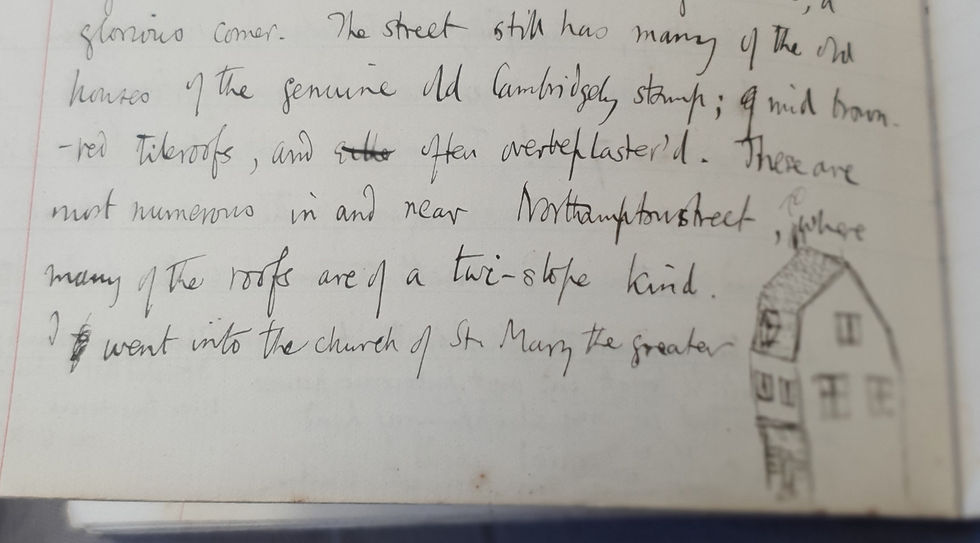 glorious corner. The street still has many of the old
houses of the genuine old Cambridgely stamp; of mid brown-
-red tileroofs, and often overbeplaster'd. These are
most numerous in and near Northamptonstreet, where
many of the roofs are of a twi-slope kind.
I went into the church of St. Mary the greater